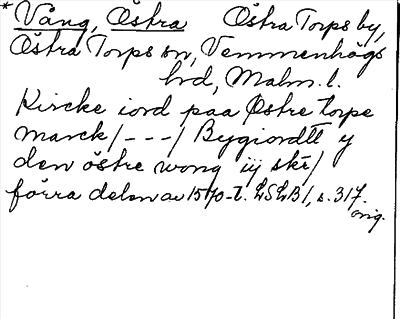 * Vång, Östra Östra Torps by,
Östra Torps sn, Vemmenhögs
hrd, Malm. l.
Kircke iord paa Østre torpe
marck/---/ Bygiordtt y
den östre wong iij skr/
förra delen av 1570-t. LSLB 1, s. 317.
orig.